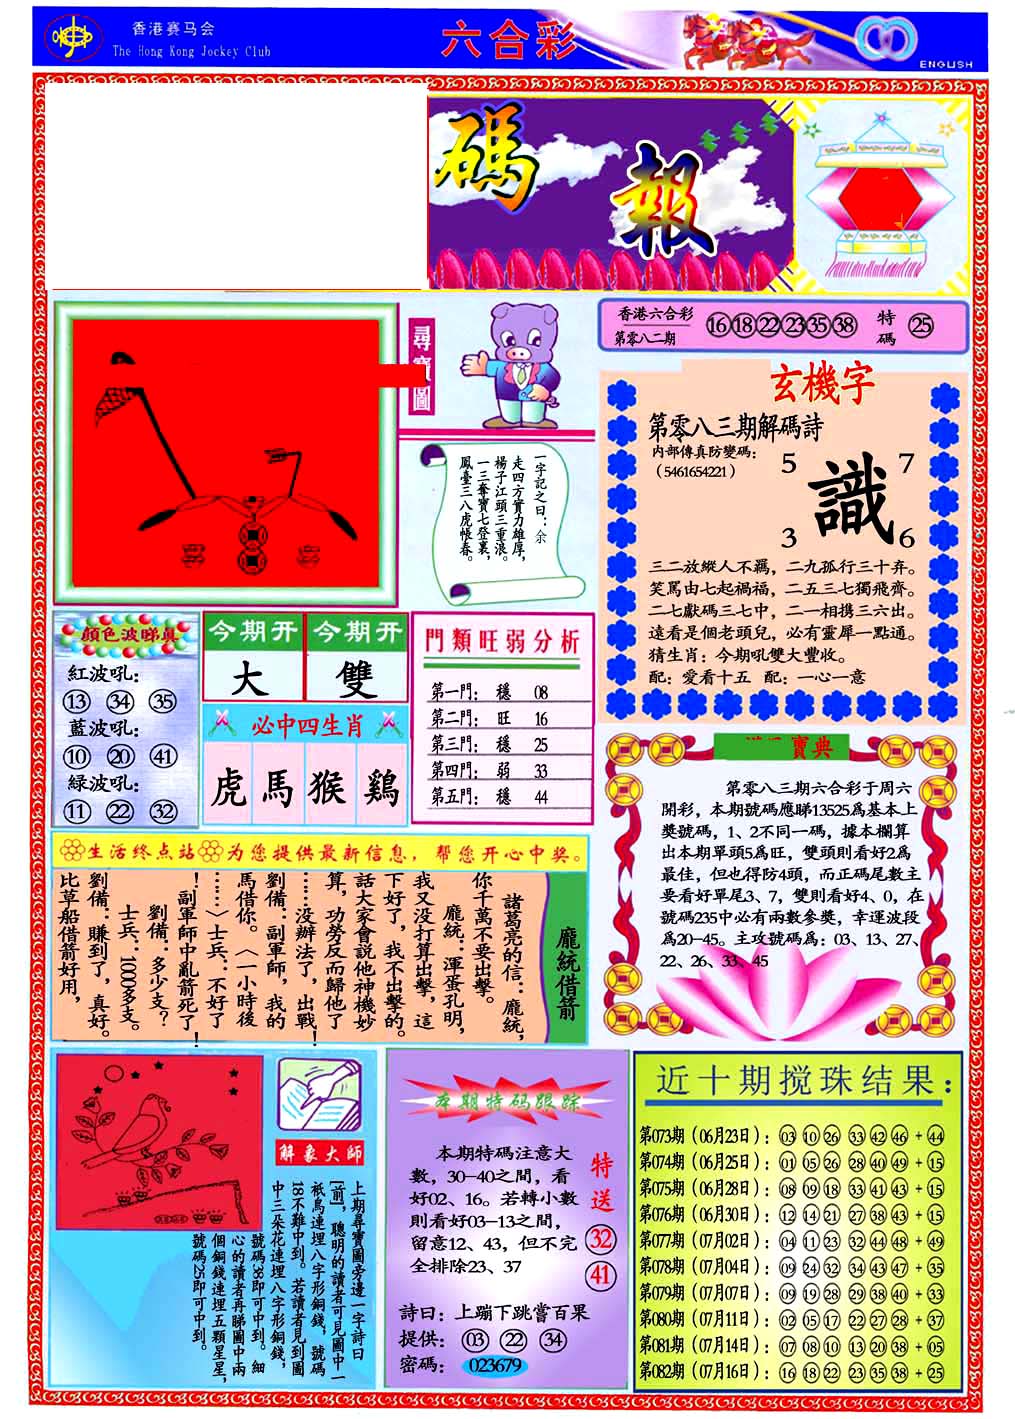 香港赛马会
The Hong Kong Jockey Club
六合彩
ENGLISH
碼報
香港六合彩
第零八二期
16 18 22 23 35 38 特碼 25
玄機字
第零八三期解碼詩
内部傳真防變碼：
（5461654221）
5 7
識
3 6
三二放縱人不羈，二九孤行三十弃。
笑罵由七起禍福，二五三七獨飛齊。
二七獻碼三七中，二一相携三六出。
遠看是個老頭兒，必有靈犀一點通。
猜生肖：今期吼雙大豐收。
配：愛看十五 配：一心一意
一字記之曰：余
走四方實力雄厚，
楊子江頭三重浪。
一三奪寶七登裏，
鳳臺三八虎帳春。
顔色波睇真
紅波吼：
13 34 35
藍波吼：
10 20 41
緑波吼：
11 22 32
今期开 今期开
大 雙
必中四生肖
虎 馬 猴 鷄
門類旺弱分析
第一門： 穩 08
第二門： 旺 16
第三門： 穩 25
第四門： 弱 33
第五門： 穩 44
寶典
第零八三期六合彩于周六
開彩，本期號碼應睇13525爲基本上
獎號碼，1、2不同一碼，據本欄算
出本期單頭5爲旺，雙頭則看好2爲
最佳，但也得防4頭，而正碼尾數主
要看好單尾3、7，雙則看好4、0，在
號碼235中必有兩數參獎，幸運波段
爲20-45。主攻號碼爲：03、13、27、
22、26、33、45
生活终点站 为您提供最新信息，帮您开心中奖。
龐統借箭
諸葛亮的信：龐統，
你千萬不要出擊。
龐統：渾蛋孔明，
我又没打算出擊，這
下好了，我不出擊的。
話大家會説他神機妙
算，功勞反而歸他了
……没辦法了，出戰！
劉備：副軍師，我的
馬借你。〈一小時後
……〉士兵：不好了
！副軍師中亂箭死了！
劉備：多少支？
士兵：1000多支。
劉備：賺到了，真好。
比草船借箭好用，
解象大師
上期尋寶圖旁邊一字詩曰
[前]，聰明的讀者可見圖中一
衹鳥連埋八字形銅錢，號碼
18不難中到。若讀者見到圖
中三朵花連埋八字形銅錢，
號碼38即可中到。細
心的讀者再睇圖中兩
個銅錢連埋五顆星星，
號碼25即可中到。
本期特码跟踪
本期特碼注意大
數，30-40之間，看
好02、16。若轉小數
則看好03-13之間，
留意12、43，但不完
全排除23、37
特送
32
41
詩曰：上蹦下跳當百果
提供： 03 22 34
密碼： 023679
近十期搅珠结果：
第073期（06月23日）：03 10 26 33 42 46 + 44
第074期（06月25日）：01 05 26 28 40 49 + 15
第075期（06月28日）：08 09 18 33 41 43 + 15
第076期（06月30日）：12 14 21 27 38 43 + 15
第077期（07月02日）：04 11 23 32 44 48 + 49
第078期（07月04日）：09 24 32 34 43 47 + 35
第079期（07月07日）：09 19 28 29 38 40 + 33
第080期（07月11日）：02 05 17 22 27 28 + 37
第081期（07月14日）：07 08 10 13 20 38 + 05
第082期（07月16日）：16 18 22 23 35 38 + 25